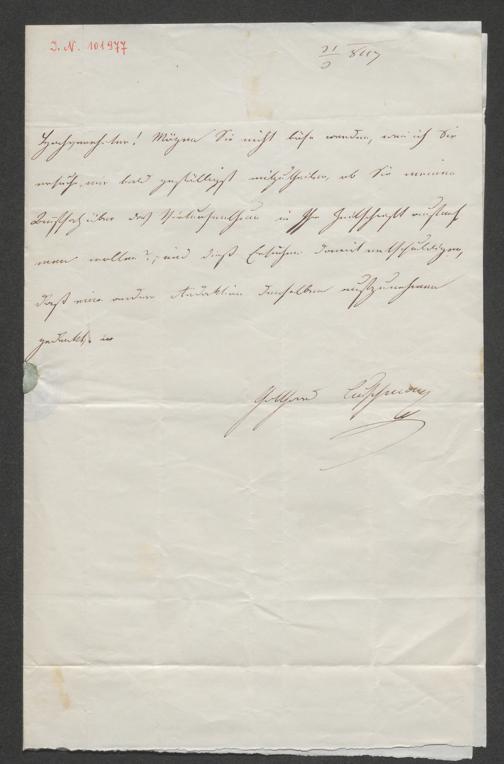 I. N. 101977
21/5 847
Hochverehrter! Mögen Sie nicht böse werden, wenn ich Sie
ersuche, mir bald gefälligst mitzutheilen, ob Sie meinen
Aufsatz über das in Ihre Zeitschrift aufneh
men wollen?, und dieß Ersuchen damit entschuldigen,
daß eine andere Redaktion denselben aufzunehmen
gedenkt.